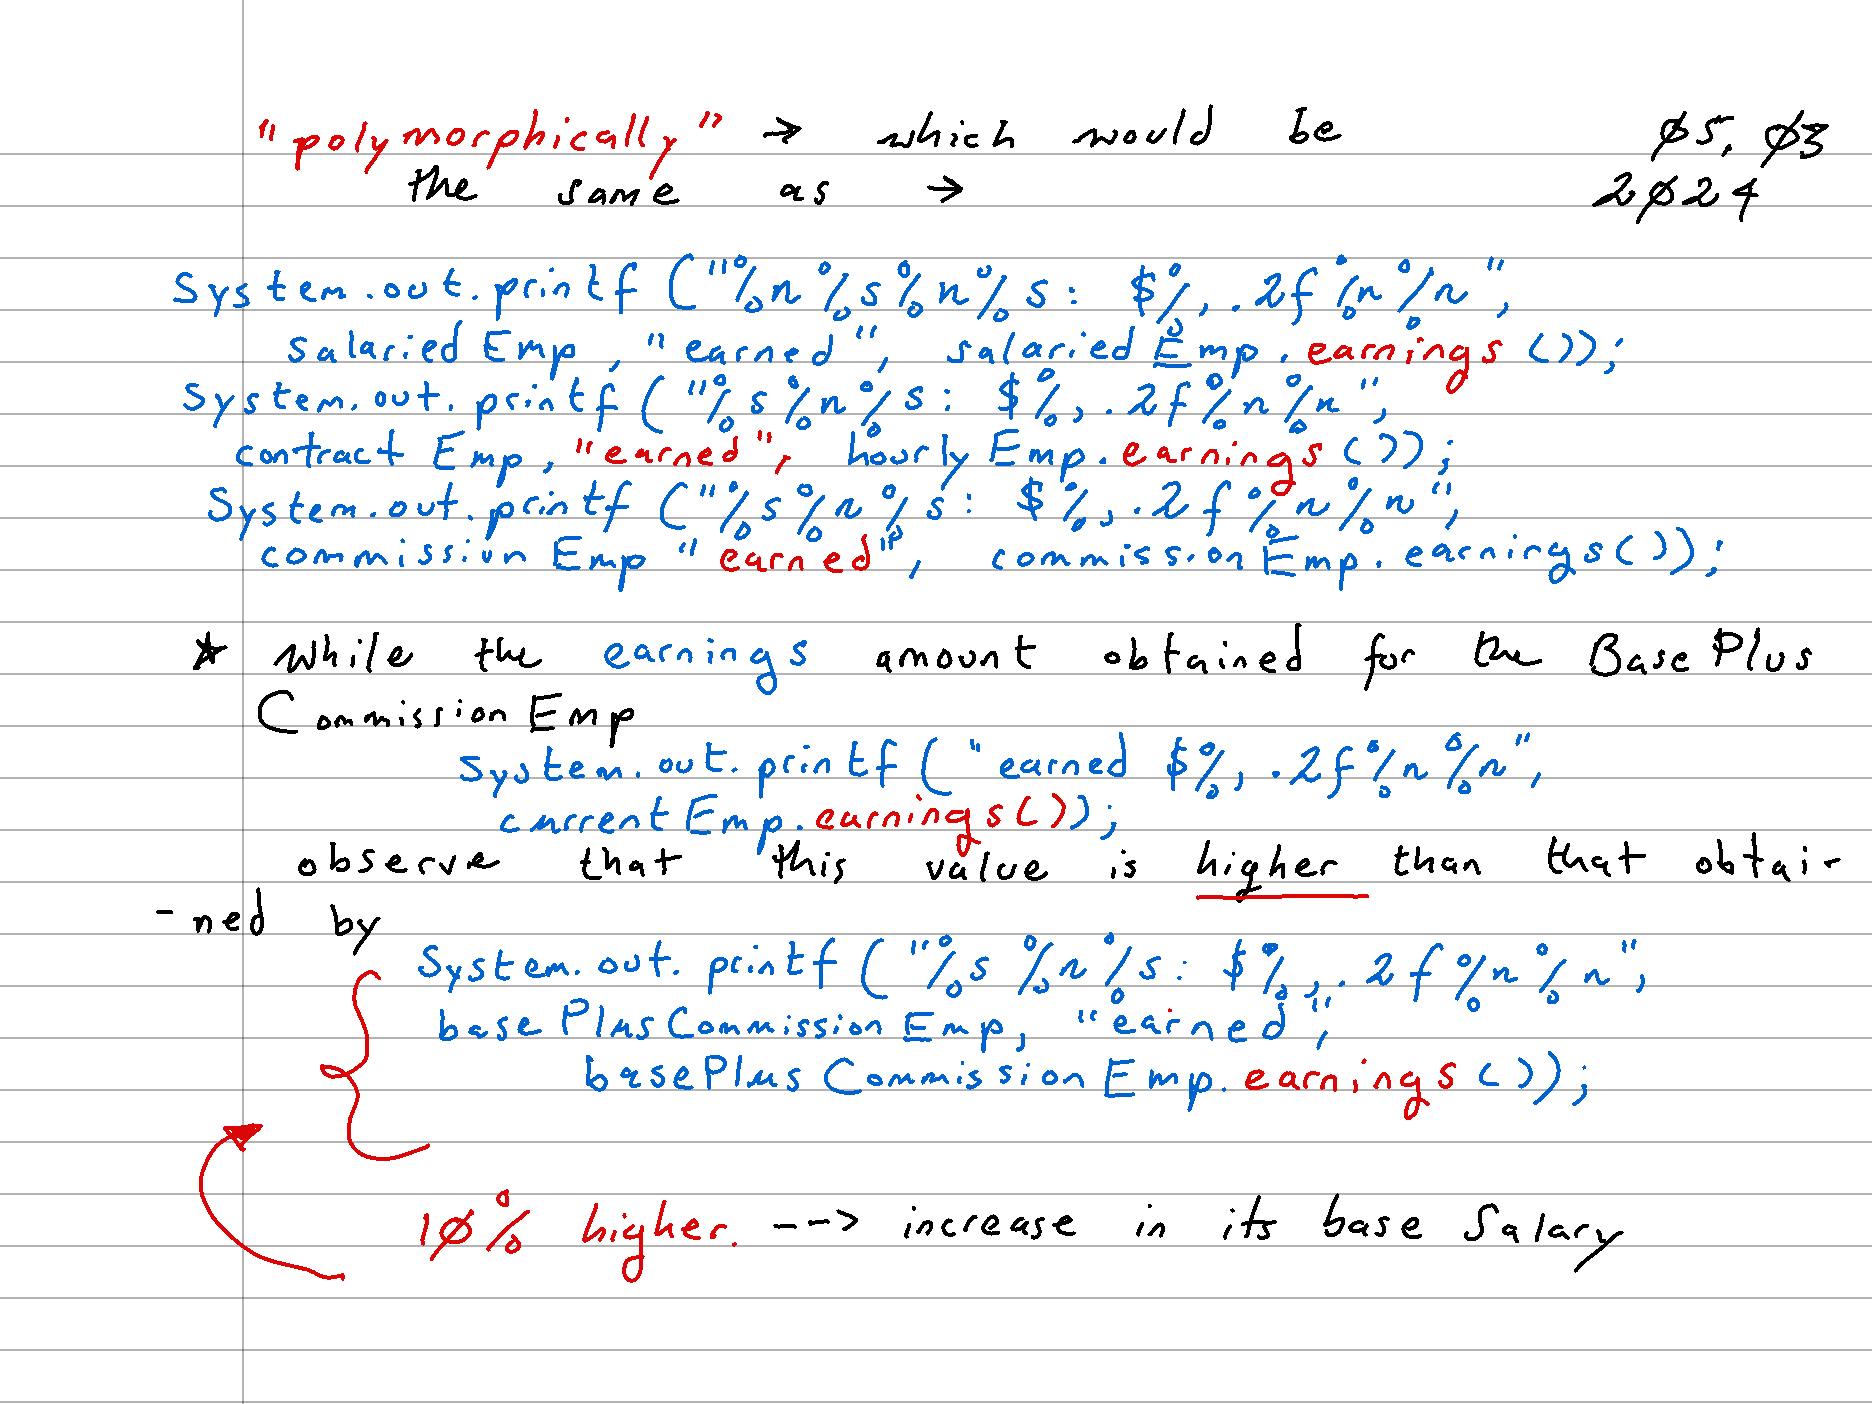 "polymorphically" → which would be 05, 03
the same as → 2024
System.out.printf ("%n%s%n%s: $%,.2f%n%n",
salariedEmp, "earned", salariedEmp.earnings());
System.out.printf ("%s%n%s: $%,.2f%n%n",
contractEmp, "earned", hourlyEmp.earnings());
System.out.printf ("%s%n%s: $%,.2f%n%n",
commissionEmp "earned", commissionEmp.earnings());
* While the earnings amount obtained for the BasePlus
CommissionEmp
System.out.printf ("earned $%,.2f%n%n",
currentEmp.earnings());
observe that this value is higher than that obtai-
-ned by
System.out.printf ("%s%n%s: $%,.2f%n%n",
basePlusCommissionEmp, "earned",
basePlusCommissionEmp.earnings());
10% higher. --> increase in its base Salary